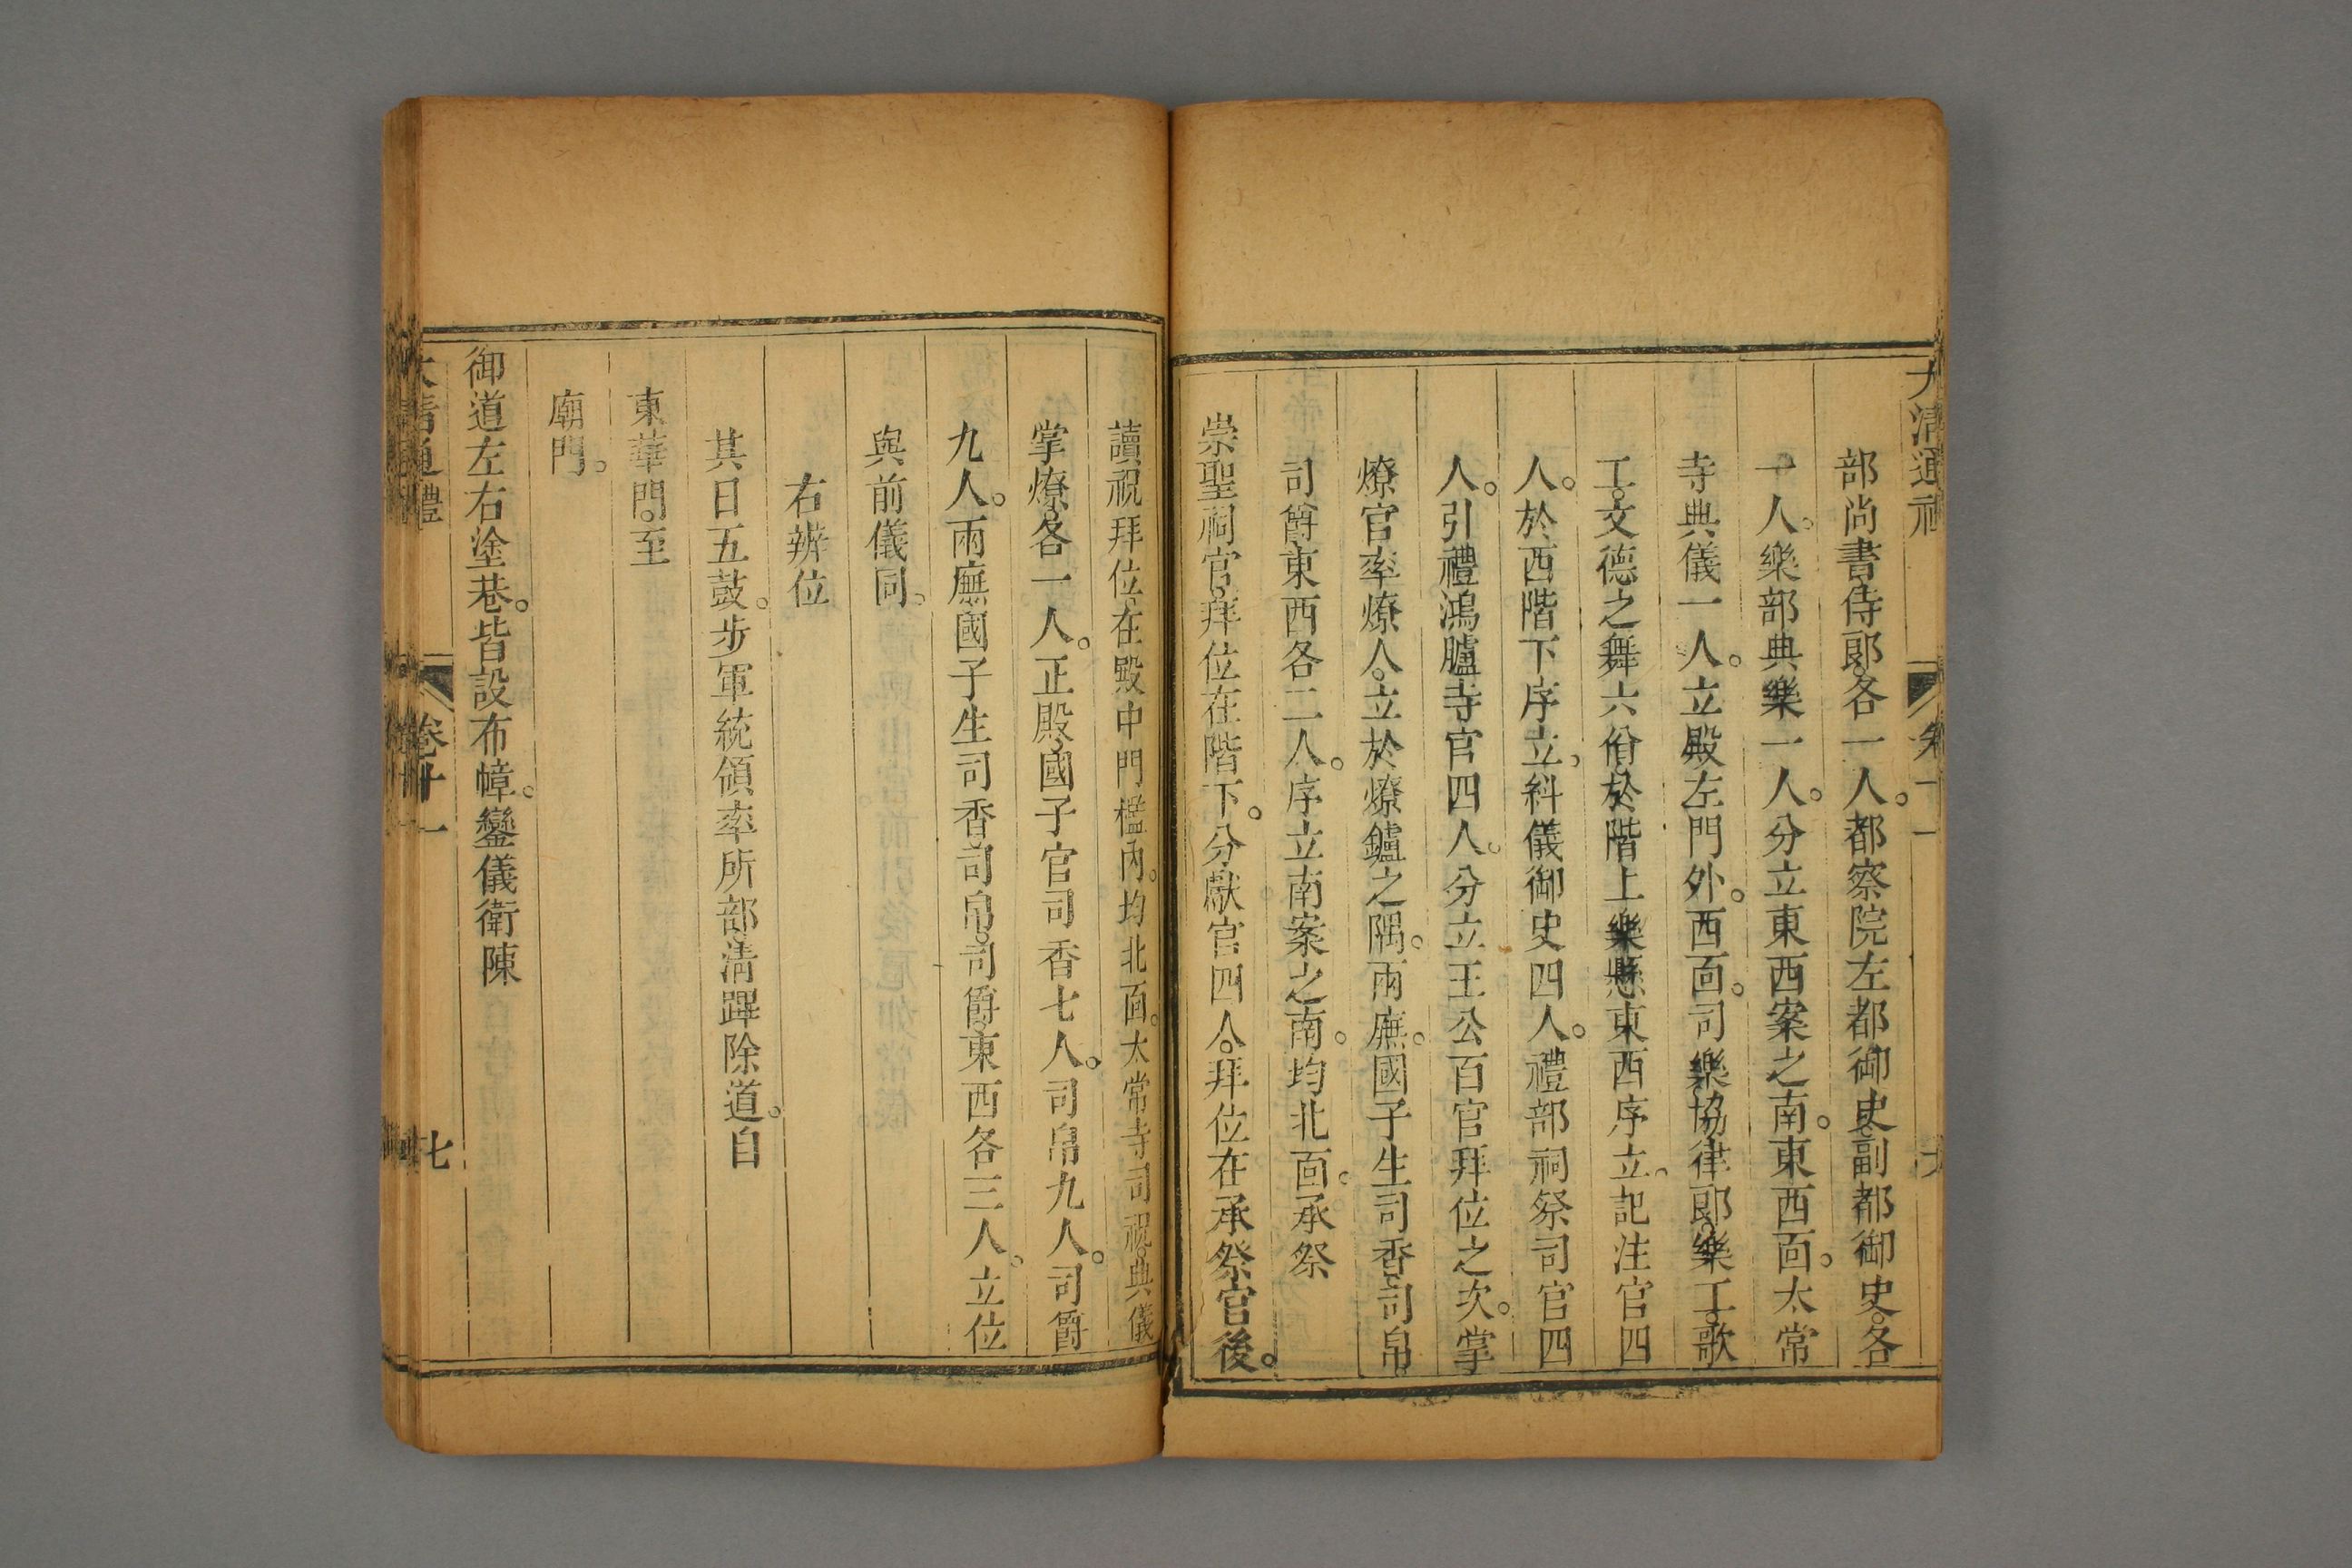 大清通禮　卷十一　六
部尚書侍郞。各一人。都察院左都御史副都御史。各
一人。樂部典樂一人。分立東西案之南。東西面。太常
寺典儀一人。立殿左門外。西面。司樂協律郞。樂工。歌
工。文德之舞六佾於階上樂懸東西序立。記注官四
人。於西階下序立。糾儀御史四人。禮部祠祭司官四
人。引禮鴻臚寺官四人。分立王公百官拜位之次。掌
燎官率燎人。立於燎鑪之隅。兩廡。國子生司香司帛
司爵東西各二人。序立南案之南。均北面。承祭
崇聖祠官。拜位在階下。分獻官四人。拜位在承祭官後。
讀祝拜位。在殿中門檻內。均北面。太常寺司祝。典儀
掌燎。各一人。正殿。國子官司香七人。司帛九人。司爵
九人。兩廡國子生司香。司帛。司爵。東西各三人。立位
與前儀同。
右辨位
其日五鼓。步軍統領率所部淸蹕除道。自
東華門。至
廟門。
御道左右塗巷。皆設布幛。鑾儀衛陳
大清通禮　卷十一　七